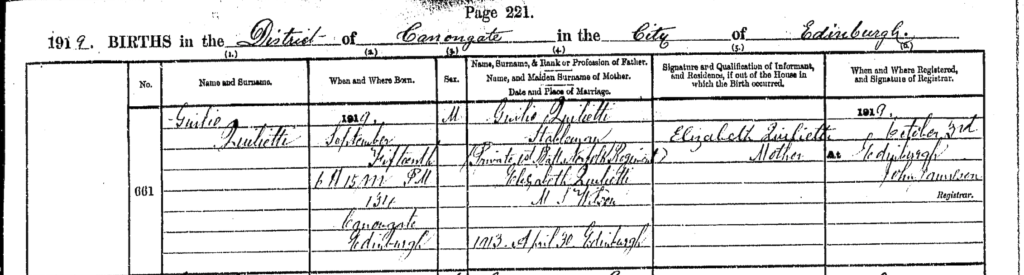 Page 221.
1919. BIRTHS in the District of Canongate in the City of Edinburgh.
(1.) (2.) (3.) (4.) (5.) (6.)
No.
Name and Surname.
When and Where Born.
Sex.
Name, Surname, & Rank or Profession of Father.
Name, and Maiden Surname of Mother.
Date and Place of Marriage.
Signature and Qualification of Informant,
and Residence, if out of the House in
which the Birth occurred.
When and Where Registered,
and Signature of Registrar.
661
Guilio
Quilietti
1919.
September
Fifteenth
6 H 15 M PM
134
Canongate
Edinburgh
M
Guilio Quilietti
Stableman
(Private 1st Batt. Norfolk Regiment)
Elizabeth Quilietti
M.S. Wilson
1913. April 30 Edinburgh
Elizabeth Quilietti
Mother
1919.
October 3rd
At Edinburgh
John
Registrar.